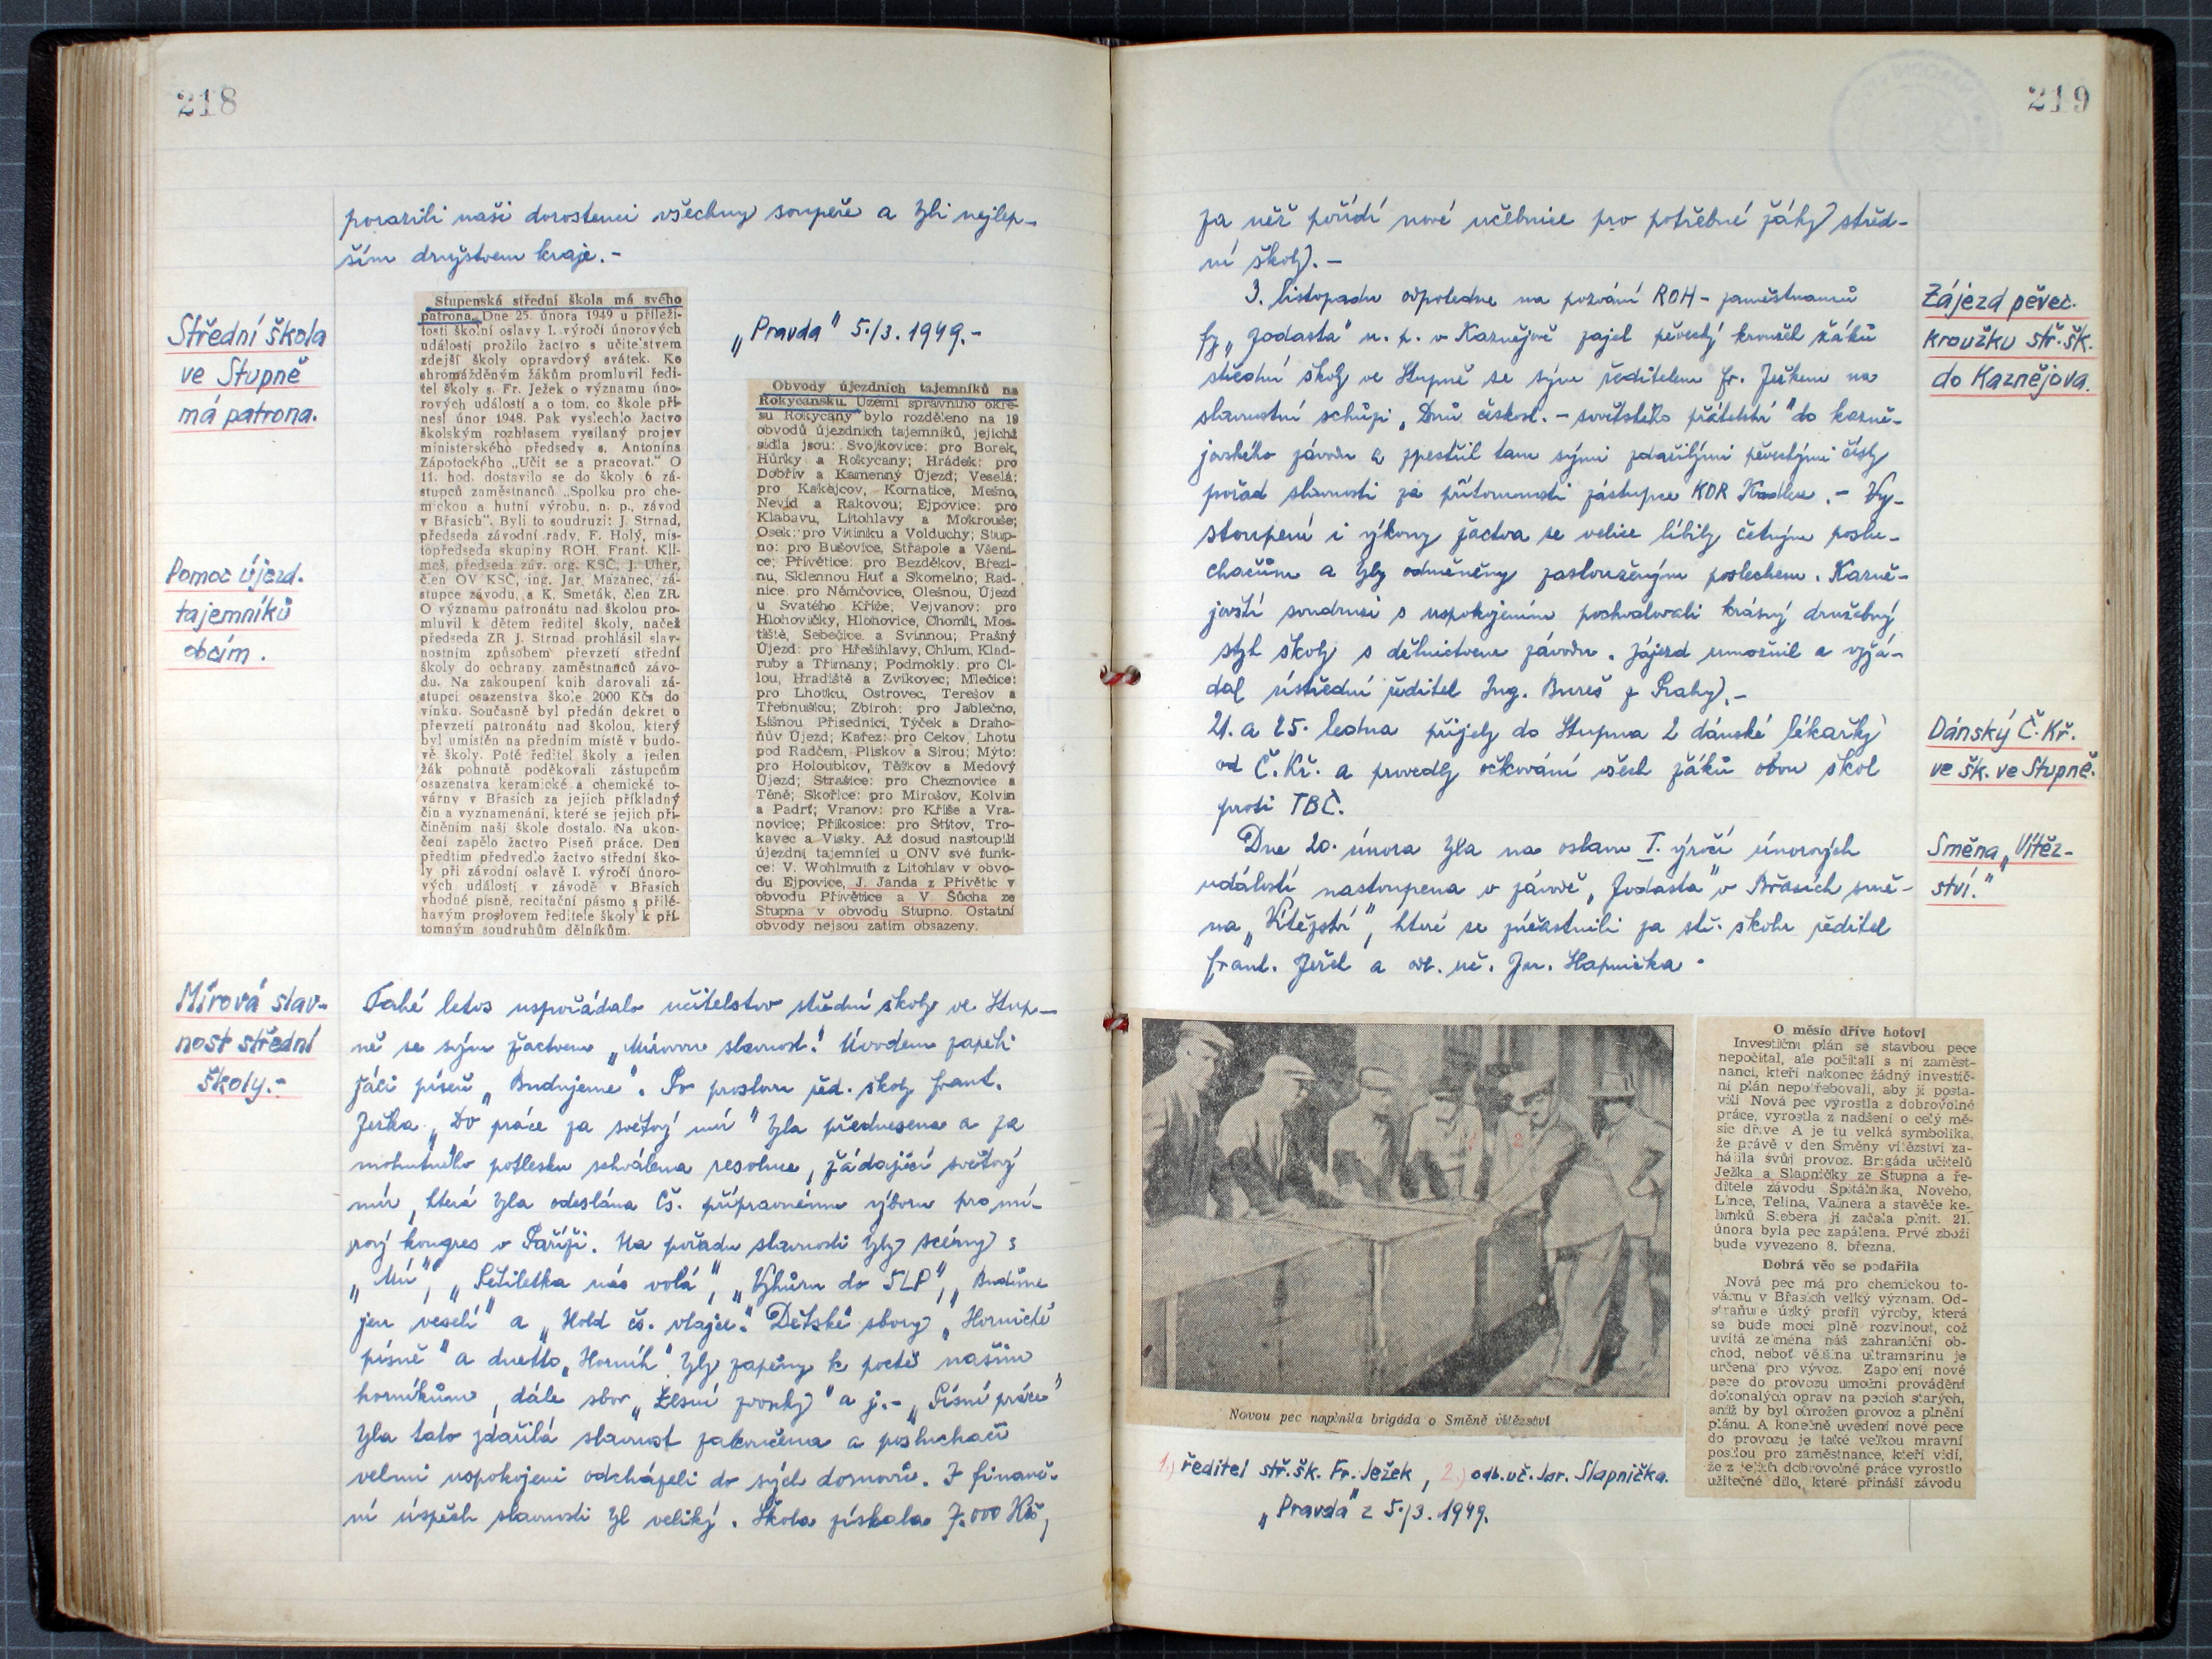 218
porazili naši dorostenci všechny soupeře a byli nejlep-
ším družstvem kraje.-
Střední škola
ve Stupně
má patrona.
Stupenská střední škola má svého
patrona. Dne 25. února 1949 u příleži-
tosti školní oslavy I. výročí únorových
událostí prožilo žactvo s učitelstvem
zdejší školy opravdový svátek. Ke
shromážděným žákům promluvil ředi-
tel školy s. Fr. Ježek o významu úno-
rových událostí a o tom, co škole při-
nesl únor 1948. Pak vyslechlo žactvo
školským rozhlasem vysílaný projev
ministerského předsedy s. Antonína
Zápotockého „Učit se a pracovat.“ O
11. hod. dostavilo se do školy 6 zá-
stupců zaměstnanců „Spolku pro che-
mickou a hutní výrobu, n. p., závod
v Břasích“. Byli to soudruzi: J. Strnad,
předseda závodní rady, F. Holý, mís-
topředseda skupiny ROH, Frant. Kli-
meš, předseda záv. org. KSČ, J. Uher,
člen OV KSČ, ing. Jar. Mazanec, zá-
stupce závodu, a K. Smeták, člen ZR.
O významu patronátu nad školou pro-
mluvil k dětem ředitel školy, načež
předseda ZR J. Strnad prohlásil slav-
nostním způsobem převzetí střední
školy do ochrany zaměstnanců závo-
du. Na zakoupení knih darovali zá-
stupci osazenstva škole 2000 Kčs do
vínku. Současně byl předán dekret o
převzetí patronátu nad školou, který
byl umístěn na předním místě v budo-
vě školy. Poté ředitel školy a jeden
žák pohnutě poděkovali zástupcům
osazenstva keramické a chemické to-
várny v Břasích za jejich příkladný
čin a vyznamenání, které se jejich při-
činěním naší škole dostalo. Na ukon-
čení zapělo žactvo Píseň práce. Den
předtím předvedlo žactvo střední ško-
ly při závodní oslavě I. výročí únoro-
vých událostí v závodě v Břasích
vhodné písně, recitační pásmo s přilé-
havým proslovem ředitele školy k pří-
tomným soudruhům dělníkům.
„Pravda“ 5./3. 1949.-
Pomoc újezd.
tajemníků
obcím.
Obvody újezdních tajemníků na
Rokycansku. Území správního okre-
su Rokycany bylo rozděleno na 19
obvodů újezdních tajemníků, jejichž
sídla jsou: Svojkovice: pro Borek,
Hůrky a Rokycany; Hrádek: pro
Dobřív a Kamenný Újezd; Veselá:
pro Kakejcov, Kornatice, Mešno,
Nevid a Rakovou; Ejpovice: pro
Klabavu, Litohlavy a Mokrouše;
Osek: pro Vitinku a Volduchy; Stup-
no: pro Bušovice, Střapole a Všeni-
ce; Přívětice: pro Bezděkov, Březi-
nu, Sklennou Huť a Skomelno; Rad-
nice: pro Němčovice, Olešnou, Újezd
u Svatého Kříže, Vejvanov: pro
Hlohovičky, Hlohovice, Chomli, Mos-
tiště, Sebečice a Svinnou; Prašný
Újezd: pro Hřešihlavy, Chlum, Klad-
ruby a Třímany; Podmokly: pro Či-
lou, Hradiště a Zvíkovec; Mlečice:
pro Lhotku, Ostrovec, Terešov a
Třebnušku; Zbiroh: pro Jablečno,
Líšnou Přísednici, Týček a Draho-
ňův Újezd; Kařez: pro Cekov, Lhotu
pod Radčem, Plískov a Sirou; Mýto:
pro Holoubkov, Těškov a Medový
Újezd; Strašice: pro Cheznovice a
Těně; Skořice: pro Mirošov, Kolvín
a Padrť; Vranov: pro Kříše a Vra-
novice; Příkosice: pro Štítov, Tro-
kavec a Vísky. Až dosud nastoupili
újezdní tajemníci u ONV své funk-
ce: V. Wohlmuth z Litohlav v obvo-
du Ejpovice, J. Janda z Přívětic v
obvodu Přívětice a V. Sůcha ze
Stupna v obvodu Stupno. Ostatní
obvody nejsou zatím obsazeny.
Mírová slav-
nost střední
školy.-
Také letos uspořádalo učitelstvo střední školy ve Stup-
ně se svým žactvem „Mírovou slavnost.“ Úvodem zapěli
žáci píseň „Budujeme“. Po proslovu řed. školy Frant.
Ježka „Do práce za světový mír“ byla přednesena a za
mohutného potlesku schválena resoluce, žádající světový
mír, která byla odeslána čs. přípravnému výboru pro mí-
rový kongres v Paříži. Na pořadu slavnosti byly scény:
„Mír“, „Pětiletka nás volá“, „Vzhůru do 5LP“, „Buďme
jen veselí“ a „Hold čs. vlajce.“ Dětské sbory „Hornické
písně“ a duetto „Horník“ byly zapěny k poctě našim
horníkům, dále sbor „Lesní zvonky“ a j.- „Písní práce“
byla tato zdařilá slavnost zakončena a posluchači
velmi uspokojeni odcházeli do svých domovů. I finanč-
ní úspěch slavnosti byl veliký. Škola získala 7.000 Kčs,
219
za něž pořídí nové učebnice pro potřebné žáky střed-
ní školy.-
Zájezd pěvec.
kroužku stř. šk.
do Kaznějova.
3. listopadu odpoledne na pozvání ROH - zaměstnanců
fy „Jodasta“ n. p. v Kaznějově zajel pěvecký kroužek žáků
střední školy ve Stupně se svým ředitelem Fr. Ježkem na
slavnostní schůzi „Dnů českosl. - sovětského přátelství“ do kazně-
jovského závodu a zpestřil tam svými zdařilými pěveckými čísly
pořad slavnosti za přítomnosti zástupce KOR Kadlece.- Vy-
stoupení i výkony žactva se velice líbily četným poslu-
chačům a byly odměněny zaslouženým potleskem. Kazně-
jovští soudruzi s uspokojením pochvalovali krásný družebný
styk školy s dělnictvem závodu. Zájezd umožnil a vyžá-
dal ústřední ředitel Ing. Bureš z Prahy.-
Dánský Č. Kř.
ve šk. ve Stupně.
21. a 25. ledna přijely do Stupna 2 dánské lékařky
od Č. Kř. a provedly očkování všech žáků obou škol
proti TBC.
Směna „Vítěz-
ství.“
Dne 20. února byla na oslavu I. výročí únorových
událostí nastoupena v závodě „Jodasta“ v Břasích smě-
na „Vítězství“, které se zúčastnili za stř. školu ředitel
Frant. Ježek a odb. uč. Jar. Slapnička.
1
2
Novou pec naplnila brigáda o Směně vítězství
1.) ředitel stř. šk. Fr. Ježek, 2.) odb. uč. Jar. Slapnička.
„Pravda“ z 5./3. 1949.
O měsíc dříve hotovi
Investiční plán se stavbou pece
nepočítal, ale počítali s ní zaměst-
nanci, kteří nakonec žádný investič-
ní plán nepotřebovali, aby ji posta-
vili Nová pec vyrostla z dobrovolné
práce, vyrostla z nadšení o celý mě-
síc dříve A je tu velká symbolika,
že právě v den Směny vítězství za-
hájila svůj provoz. Brigáda učitelů
Ježka a Slapničky ze Stupna a ře-
ditele závodu Špitálníka, Nového,
Lince, Telina, Valnera a stavěče ke-
límků Siebera ji začala plnit. 21.
února byla pec zapálena. Prvé zboží
bude vyvezeno 8. března.
Dobrá věc se podařila
Nová pec má pro chemickou to-
várnu v Břasích velký význam. Od-
straňuje úzký profil výroby, která
se bude moci plně rozvinout, což
uvítá zejména náš zahraniční ob-
chod, neboť většina ultramarinu je
určena pro vývoz. Zapojení nové
pece do provozu umožní provádění
dokonalých oprav na pecích starých,
aniž by byl ohrožen provoz a plnění
plánu. A konečně uvedení nové pece
do provozu je také velkou mravní
posilou pro zaměstnance, kteří vidí,
že z jejich dobrovolné práce vyrostlo
užitečné dílo, které přináší závodu